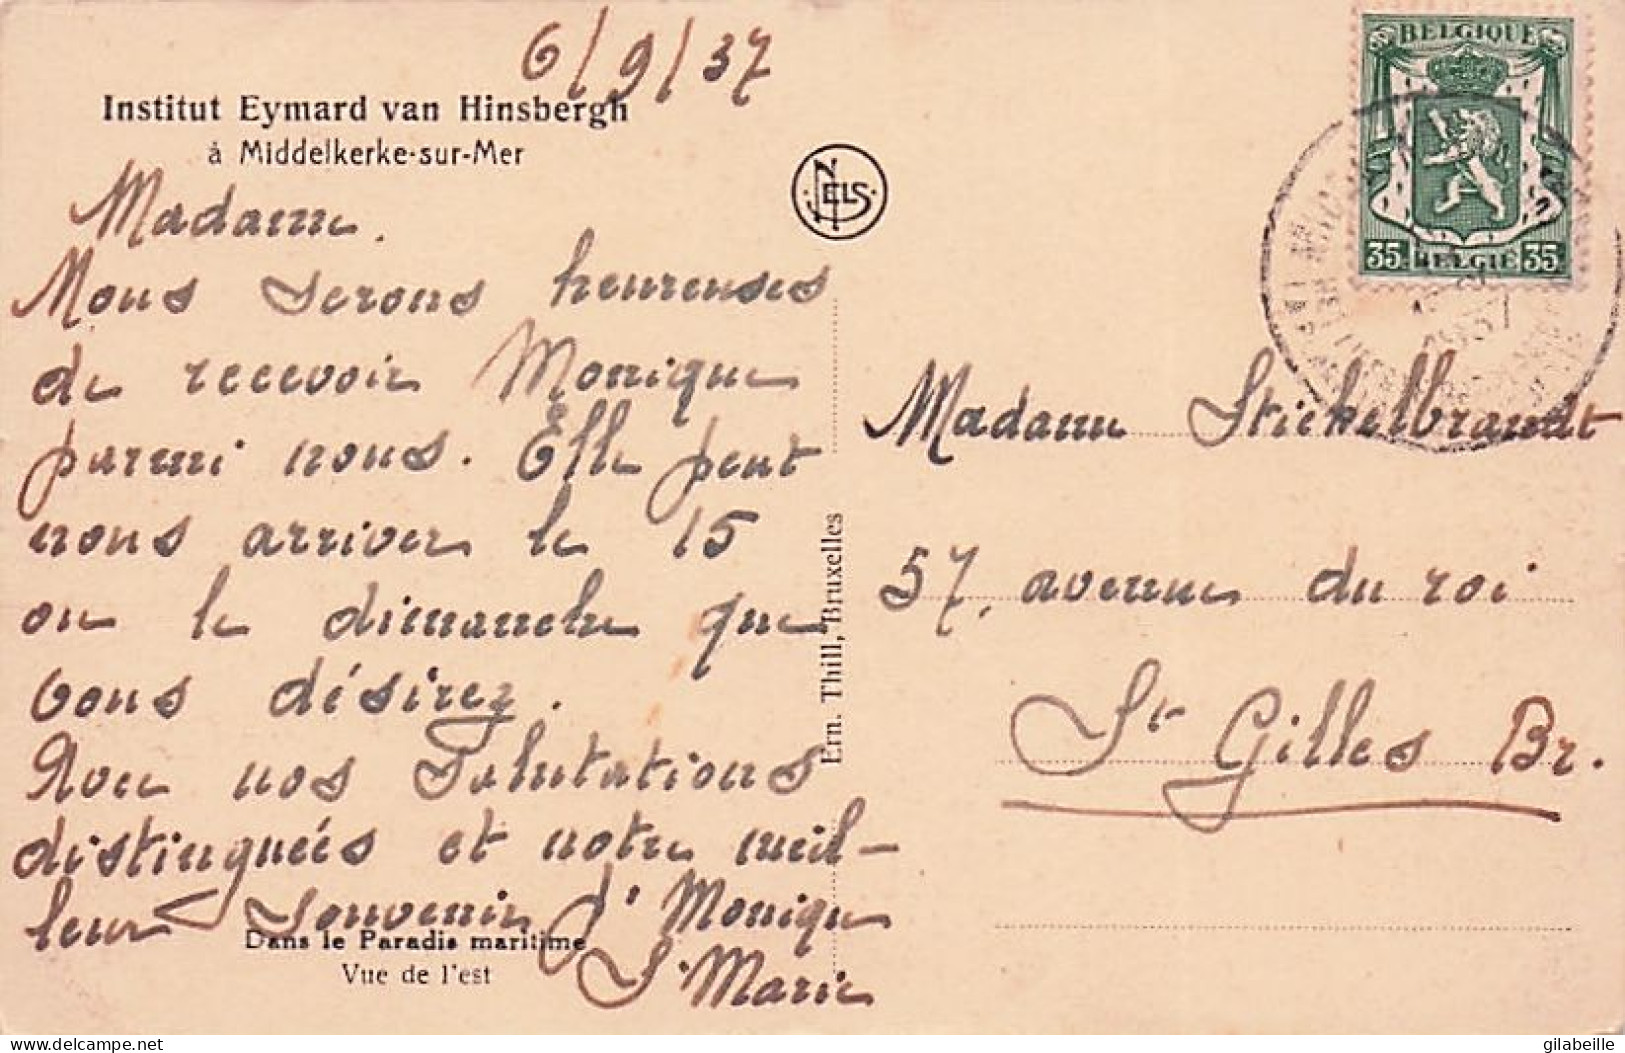 6/9/37
Institut Eymard van Hinsbergh
à Middelkerke-sur-Mer
Madame.
Nous serons heureuses
de recevoir Monique
parmi nous. Elle peut
nous arriver le 15
ou le dimanche que
vous désirez.
Avec nos Salutations
distinguées et notre meil-
leur souvenir à Monique
Sr Marie
Dans le Paradis maritime
Vue de l'est
NELS
Ern. Thill, Bruxelles
BELGIQUE
35 BELGIË 35
37
Madame Stickelbrandt
57, avenue du roi
St Gilles Br.
delcampe.net
gilabeille